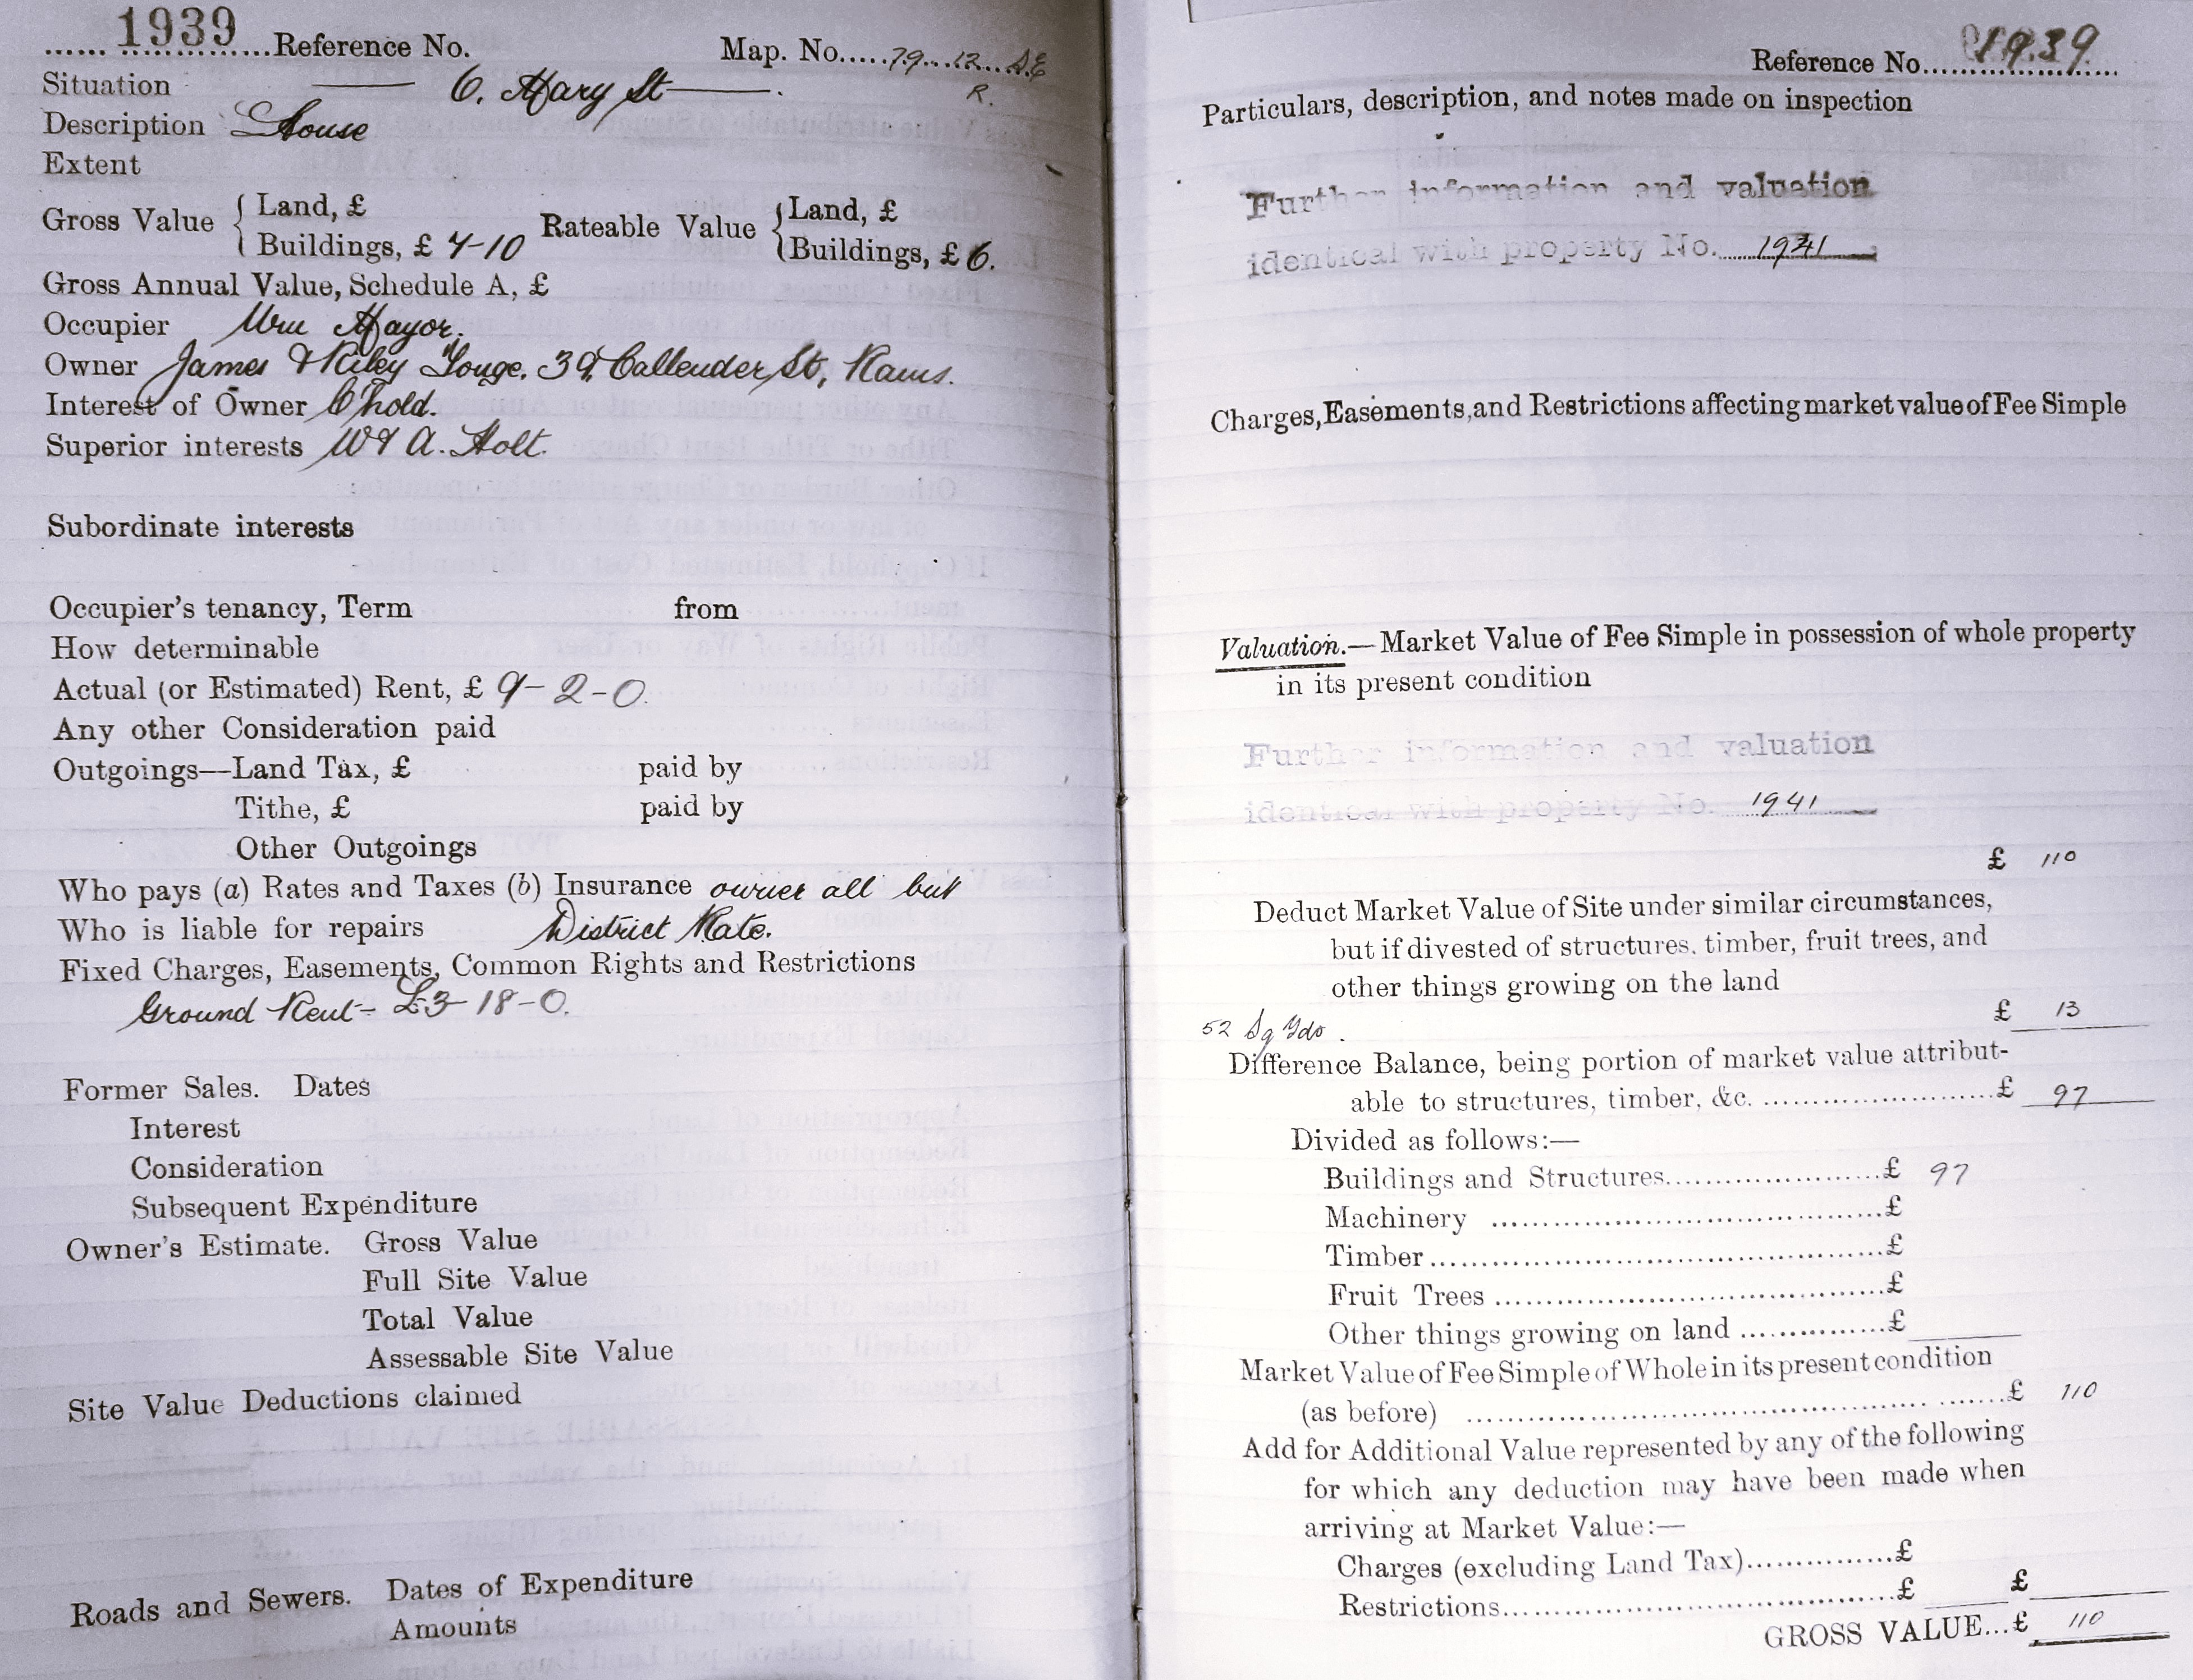 1939 Reference No. Map. No. 79 12 S.E
R.
Situation 6. Mary St
Description House
Extent
Gross Value { Land, £ Rateable Value { Land, £
Buildings, £ 7-10 Buildings, £ 6.
Gross Annual Value, Schedule A, £
Occupier Wm Mayor.
Owner James & Riley Longe. 39, Callender St, Rams.
Interest of Owner C'hold.
Superior interests W & A. Holt.
Subordinate interests
Occupier's tenancy, Term from
How determinable
Actual (or Estimated) Rent, £ 9-2-0.
Any other Consideration paid
Outgoings—Land Tax, £ paid by
Tithe, £ paid by
Other Outgoings
Who pays (a) Rates and Taxes (b) Insurance owner all but
Who is liable for repairs District Rate.
Fixed Charges, Easements, Common Rights and Restrictions
Ground Rent - £3-18-0.
Former Sales. Dates
Interest
Consideration
Subsequent Expenditure
Owner's Estimate. Gross Value
Full Site Value
Total Value
Assessable Site Value
Site Value Deductions claimed
Roads and Sewers. Dates of Expenditure
Amounts
Reference No. 1939
Particulars, description, and notes made on inspection
Further information and valuation
identical with property No. 1941
Charges, Easements, and Restrictions affecting market value of Fee Simple
Valuation.—Market Value of Fee Simple in possession of whole property
in its present condition
Further information and valuation
identical with property No. 1941
£ 110
Deduct Market Value of Site under similar circumstances,
but if divested of structures, timber, fruit trees, and
other things growing on the land
£ 13
52 Sq Yds.
Difference Balance, being portion of market value attribut-
able to structures, timber, &c. £ 97
Divided as follows:—
Buildings and Structures £ 97
Machinery £
Timber £
Fruit Trees £
Other things growing on land £
Market Value of Fee Simple of Whole in its present condition
(as before) £ 110
Add for Additional Value represented by any of the following
for which any deduction may have been made when
arriving at Market Value:—
Charges (excluding Land Tax) £
Restrictions £ £
GROSS VALUE...£ 110